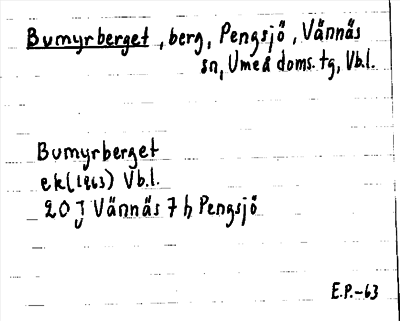 Bumyrberget, berg, Pengsjö, Vännäs
sn, Umeå doms. tg, Vb.l.
Bumyrberget
ek (1963) Vb.l.
20 J Vännäs 7 h Pengsjö
E.P.-63